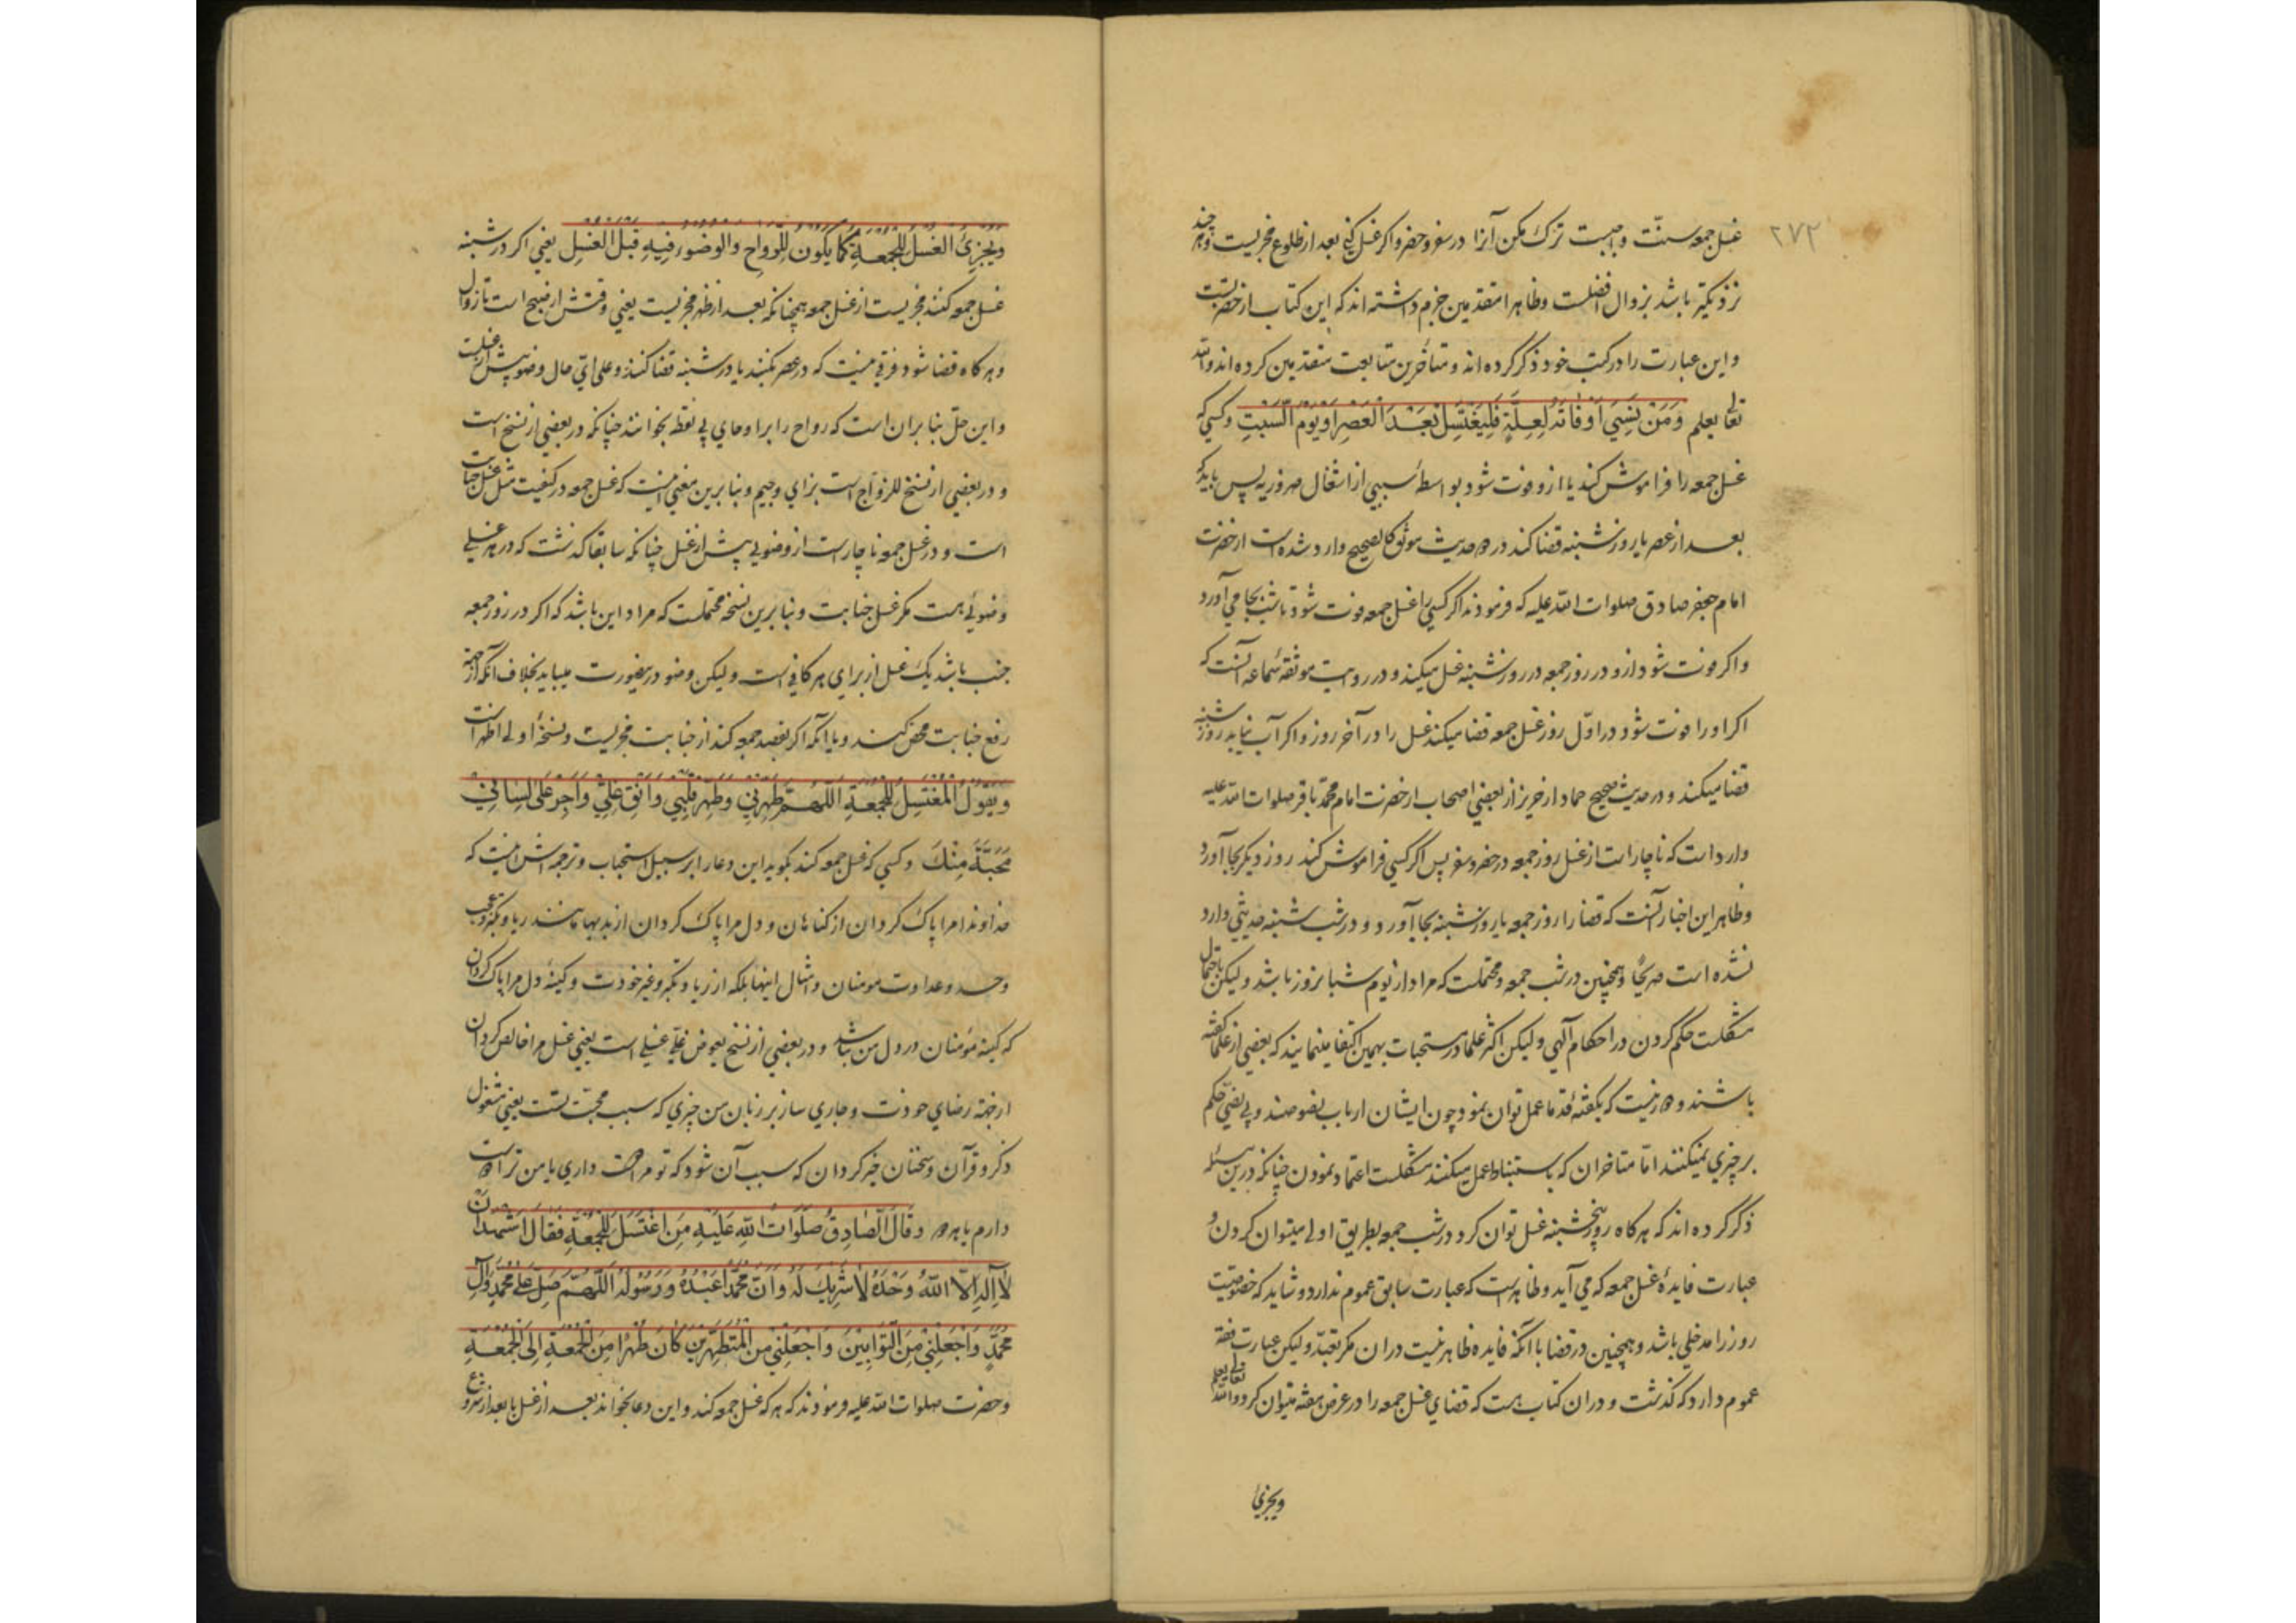 ۲۷۲
غسل جمعه سنّت واجبست ترک مکن آنرا در سفر و حضر و اکر غسل کنی بعد از طلوع فجر مجزیست و هر چند
نزدیکتر باشد بزوال افضلست و ظاهرا متقدمین جزم داشته‌اند که این کتاب از حضرتست
و این عبارت را در کتب خود ذکر کرده‌اند و متأخرین متابعت متقدمین کرده‌اند والله
تعالی یعلم وَمَنْ نَسِيَ اَوْ فَاتَهُ لِعِلَّةٍ فَلْيَغْتَسِلْ بَعْدَ الْعَصْرِ اَوْ يَوْمَ السَّبْتِ و کسی که
غسل جمعه را فراموش کند یا ازو فوت شود بواسطهٔ سببی از اشغال ضروریه پس باید که
بعد از عصر یا روز شنبه قضا کند در حدیث موثق کالصحیح وارد شده است از حضرت
امام جعفر صادق صلوات الله علیه که فرمودند اکر کسی را غسل جمعه فوت شود تا شب بجا می‌آورد
و اکر فوت شود ازو در روز جمعه در روز شنبه غسل میکند و در روایت موثقه سماعه آنست که
اکر او را فوت شود در اوّل روز غسل جمعه قضا میکند غسل را در آخر روز و اکر آب نیابد روز شنبه
قضا میکند و در حدیث صحیح حماد از حریز از بعضی اصحاب از حضرت امام محمّد باقر صلوات الله علیه
وارد است که ناچار است از غسل روز جمعه در حضر و سفر پس اکر کسی فراموش کند روز دیکر بجا آورد
و ظاهر این اخبار آنست که قضا را روز جمعه یا روز شنبه بجا آورد و در شب شنبه حدیثی وارد
نشده است صریحًا و همچنین در شب جمعه و محتملست که مراد از یوم شبانروز باشد و لیکن باحتمال
مشکلست حکم کردن در احکام آلهی و لیکن اکثر علما در مستحبات بهمین اکتفا مینمایند که بعضی از علما کفته
باشند و نیست که بکفتهٔ قدما عمل توان نمود چون ایشان ارباب نصوصند و بی نصّی حکم
بر چیزی نمیکنند امّا متاخران که باستنباط عمل میکنند مشکلست اعتماد نمودن چنانکه درین مسئله
ذکر کرده‌اند که هرکاه روز پنجشنبه غسل توان کرد در شب جمعه بطریق اولی میتوان کردن و
عبارت فایدهٔ غسل جمعه که می آید و ظاهر است که عبارت سابق عموم ندارد و شاید که خصوصیت
روز را مدخلی باشد و همچنین در قضا با آنکه فایده ظاهر نیست در ان مکر تعبّد و لیکن عبارت فقه
عموم دارد که کذشت و در ان کتاب هست که قضای غسل جمعه را در عرض هفته میتوان کرد والله تعالی یعلم
ویجزئ
وَيُجْزِئُ الْغُسْلُ لِلْجُمُعَةِ كَمَا يَكُونُ لِلرَّوَاحِ وَالْوُضُوءُ فِيهِ قَبْلَ الْغُسْلِ یعنی اکر در شبنه
غسل جمعه کنند مجزیست از غسل جمعه همچنانکه بعد از ظهر مجزیست یعنی وقتش از صبح است تا زوال
و هرکاه قضا شود فرقی نیست که در عصر بکنند یا در شنبه قضا کنند و علی ایّ حال وضو پیش از غسلست
و این حلّ بنا بر ان است که رواح را برا و حای بی نقطه بخوانند چنانکه در بعضی از نسخ است
و در بعضی از نسخ للزواج است بزای و جیم و بنا برین معنی اینست که غسل جمعه در کیفیت مثل غسل جنابت
است و در غسل جمعه ناچار است از وضوئی پیش از غسل چنانکه سابقا کذشت که در هر غسلی
وضوئی هست مکر غسل جنابت و بنا برین نسخه محتملست که مراد این باشد که اکر در روز جمعه
جنب باشد یک غسل از برای هر کافی است و لیکن وضو درینصورت میباید بخلاف آنکه از جهة
رفع جنابت محض کنند و با آنکه اکر بقصد جمعه کند از جنابت مجزیست و نسخهٔ اولی اظهر است
وَيَقُولُ الْمُغْتَسِلُ لِلْجُمُعَةِ اَللّٰهُمَّ طَهِّرْنِي وَطَهِّرْ قَلْبِي وَاَنْقِ غِلِّي وَاَجْرِ عَلَى لِسَانِي
مَحَبَّةً مِنْكَ و کسی که غسل جمعه کند بکوید این دعا را بر سبیل استحباب و ترجمه‌اش اینست که
خداوندا مرا پاک کردان از کناهان و دل مرا پاک کردان از بدیها مانند ریا و تکبّر و عجب
و حسد و عداوت مومنان و امثال اینها بلکه از ریا و تکبر و غیر خودت و کینهٔ دل مرا پاک کردان
که کینهٔ مؤمنان در دل من نباشد و در بعضی از نسخ بعوض غلّی غسلی است یعنی غسل مرا خالص کردان
از جهة رضای خودت و جاری ساز بر زبان من چیزی که سبب محبّت تست یعنی مشغول
ذکر و قرآن و سخنان خیر کردان که سبب آن شود که تو مرا دوست داری یا من ترا دوست
دارم یا هر دو وَقَالَ الصَّادِقُ صَلَوَاتُ اللّٰهِ عَلَيْهِ مَنِ اغْتَسَلَ لِلْجُمُعَةِ فَقَالَ اَشْهَدُ اَنْ
لَا اِلٰهَ اِلَّا اللّٰهُ وَحْدَهُ لَا شَرِيكَ لَهُ وَاَنَّ مُحَمَّدًا عَبْدُهُ وَرَسُولُهُ اَللّٰهُمَّ صَلِّ عَلَى مُحَمَّدٍ وَآلِ
مُحَمَّدٍ وَاجْعَلْنِي مِنَ التَّوَّابِينَ وَاجْعَلْنِي مِنَ الْمُتَطَهِّرِينَ كَانَ طُهْرًا مِنَ الْجُمُعَةِ اِلَى الْجُمُعَةِ
و حضرت صلوات الله علیه فرمودند که هر که غسل جمعه کند و این دعا بخواند بعد از غسل یا بعد از شروع